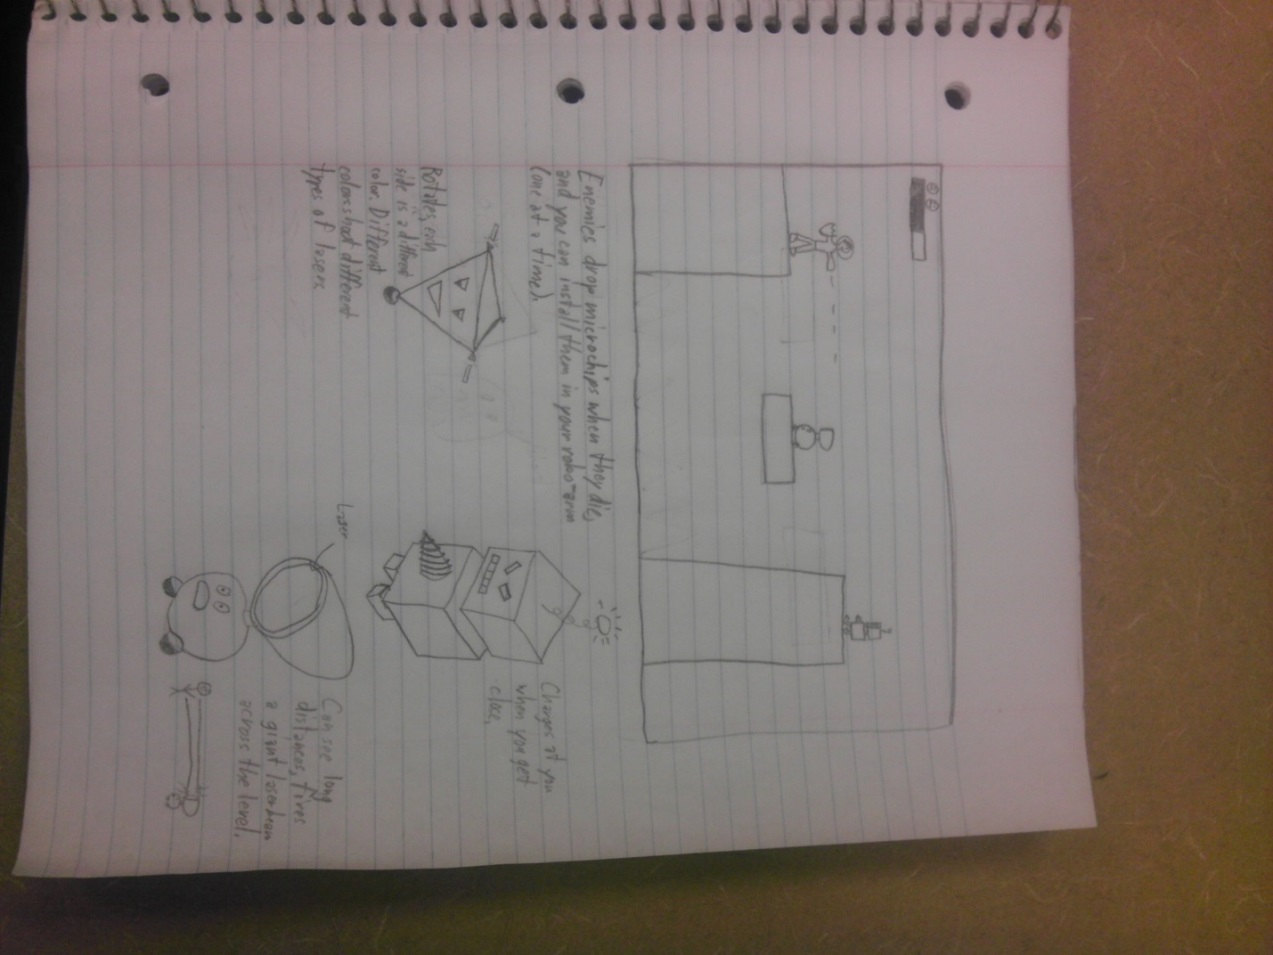 Enemies drop microchips when they die,
and you can install them in your robo-arm
(one at a time).
Rotates, each
side is a different
color. Different
colors shoot different
types of lasers.
Charges at you
when you get
close.
Laser
Can see long
distances, fires
a giant laserbeam
across the level.